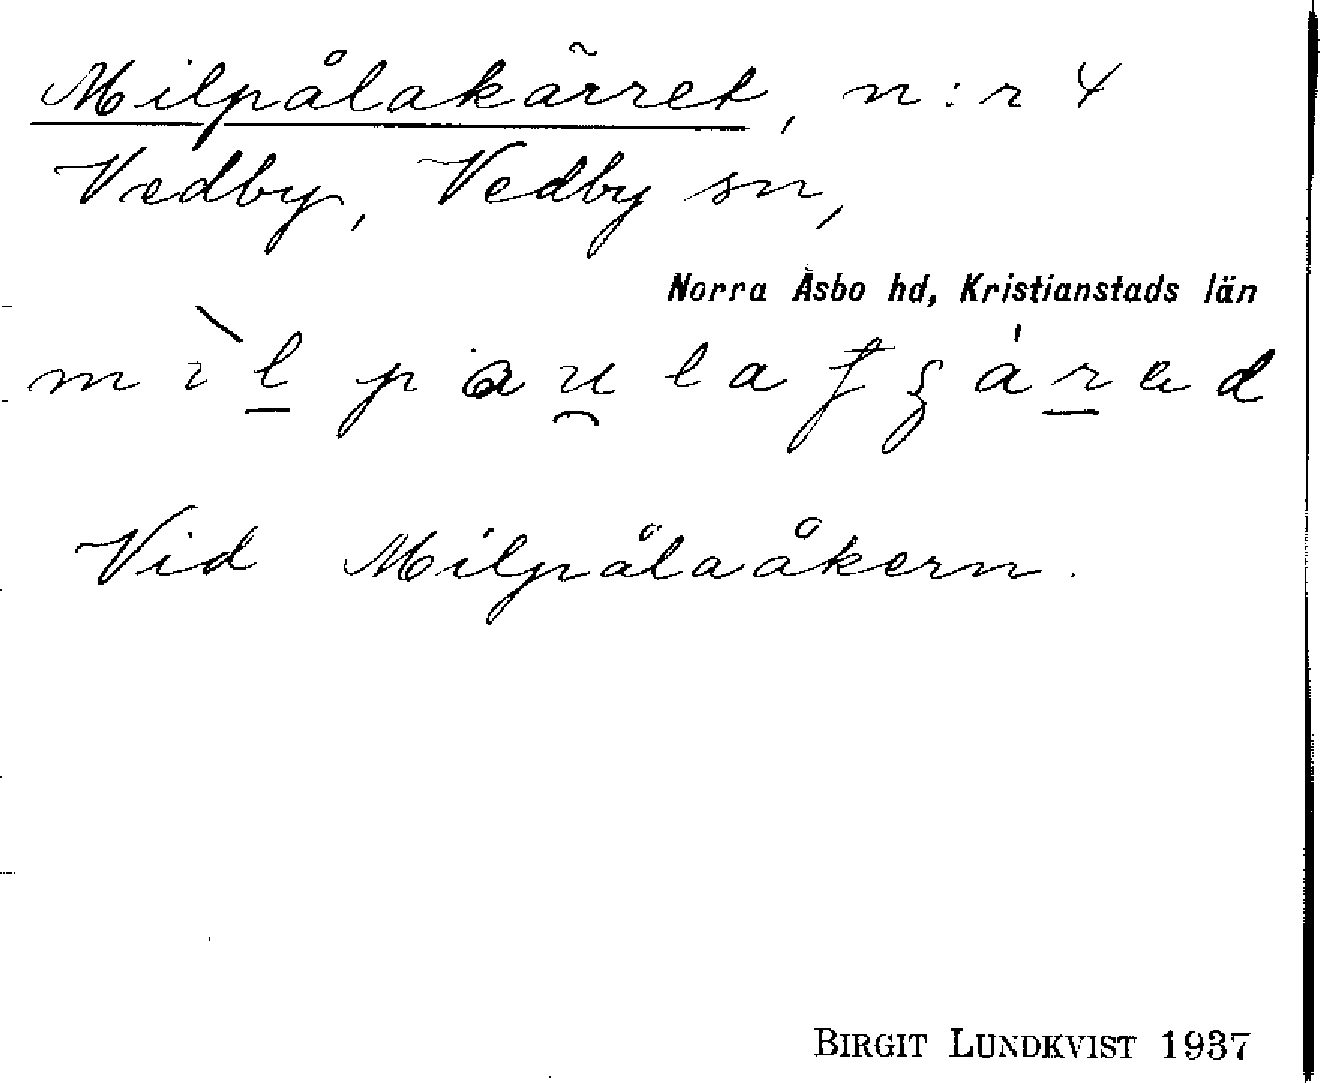 Milpålakärret, n:r 4
Vedby, Vedby sn,
Norra Åsbo hd, Kristianstads län
Vid Milpålaåkern.
BIRGIT LUNDKVIST 1937